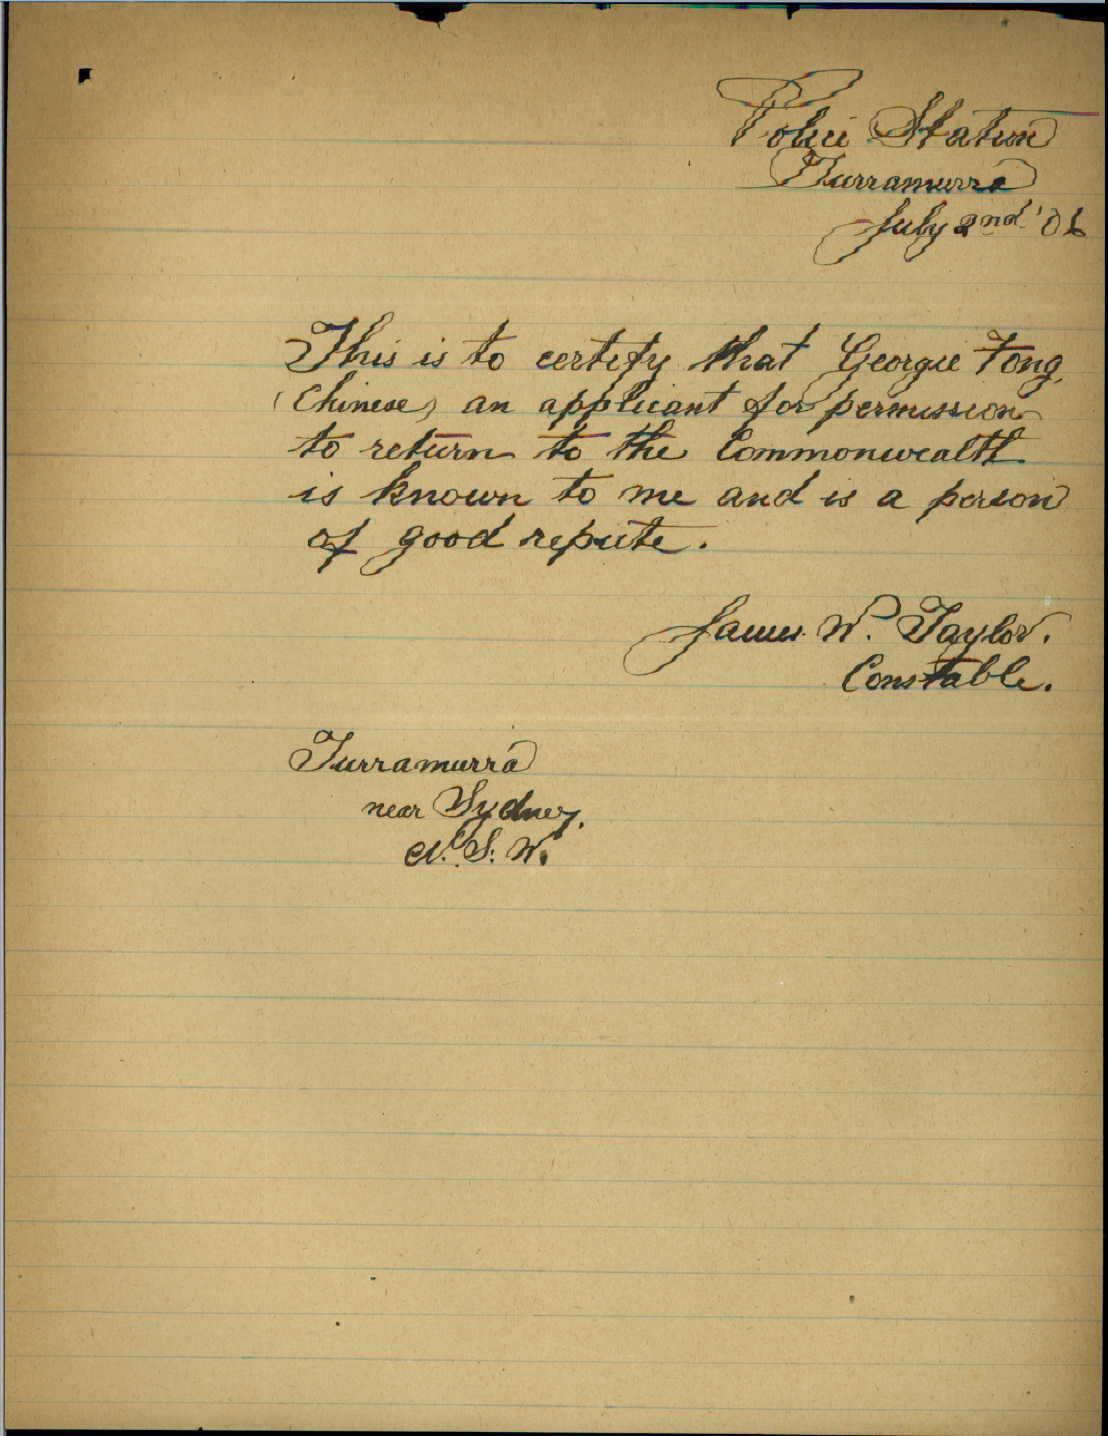 Police Station
Turramurra
July 2nd '06
This is to certify that George Fong,
(Chinese) an applicant for permission
to return to the Commonwealth
is known to me and is a person
of good repute.
James W. Taylor.
Constable.
Turramurra
near Sydney.
N. S. W.